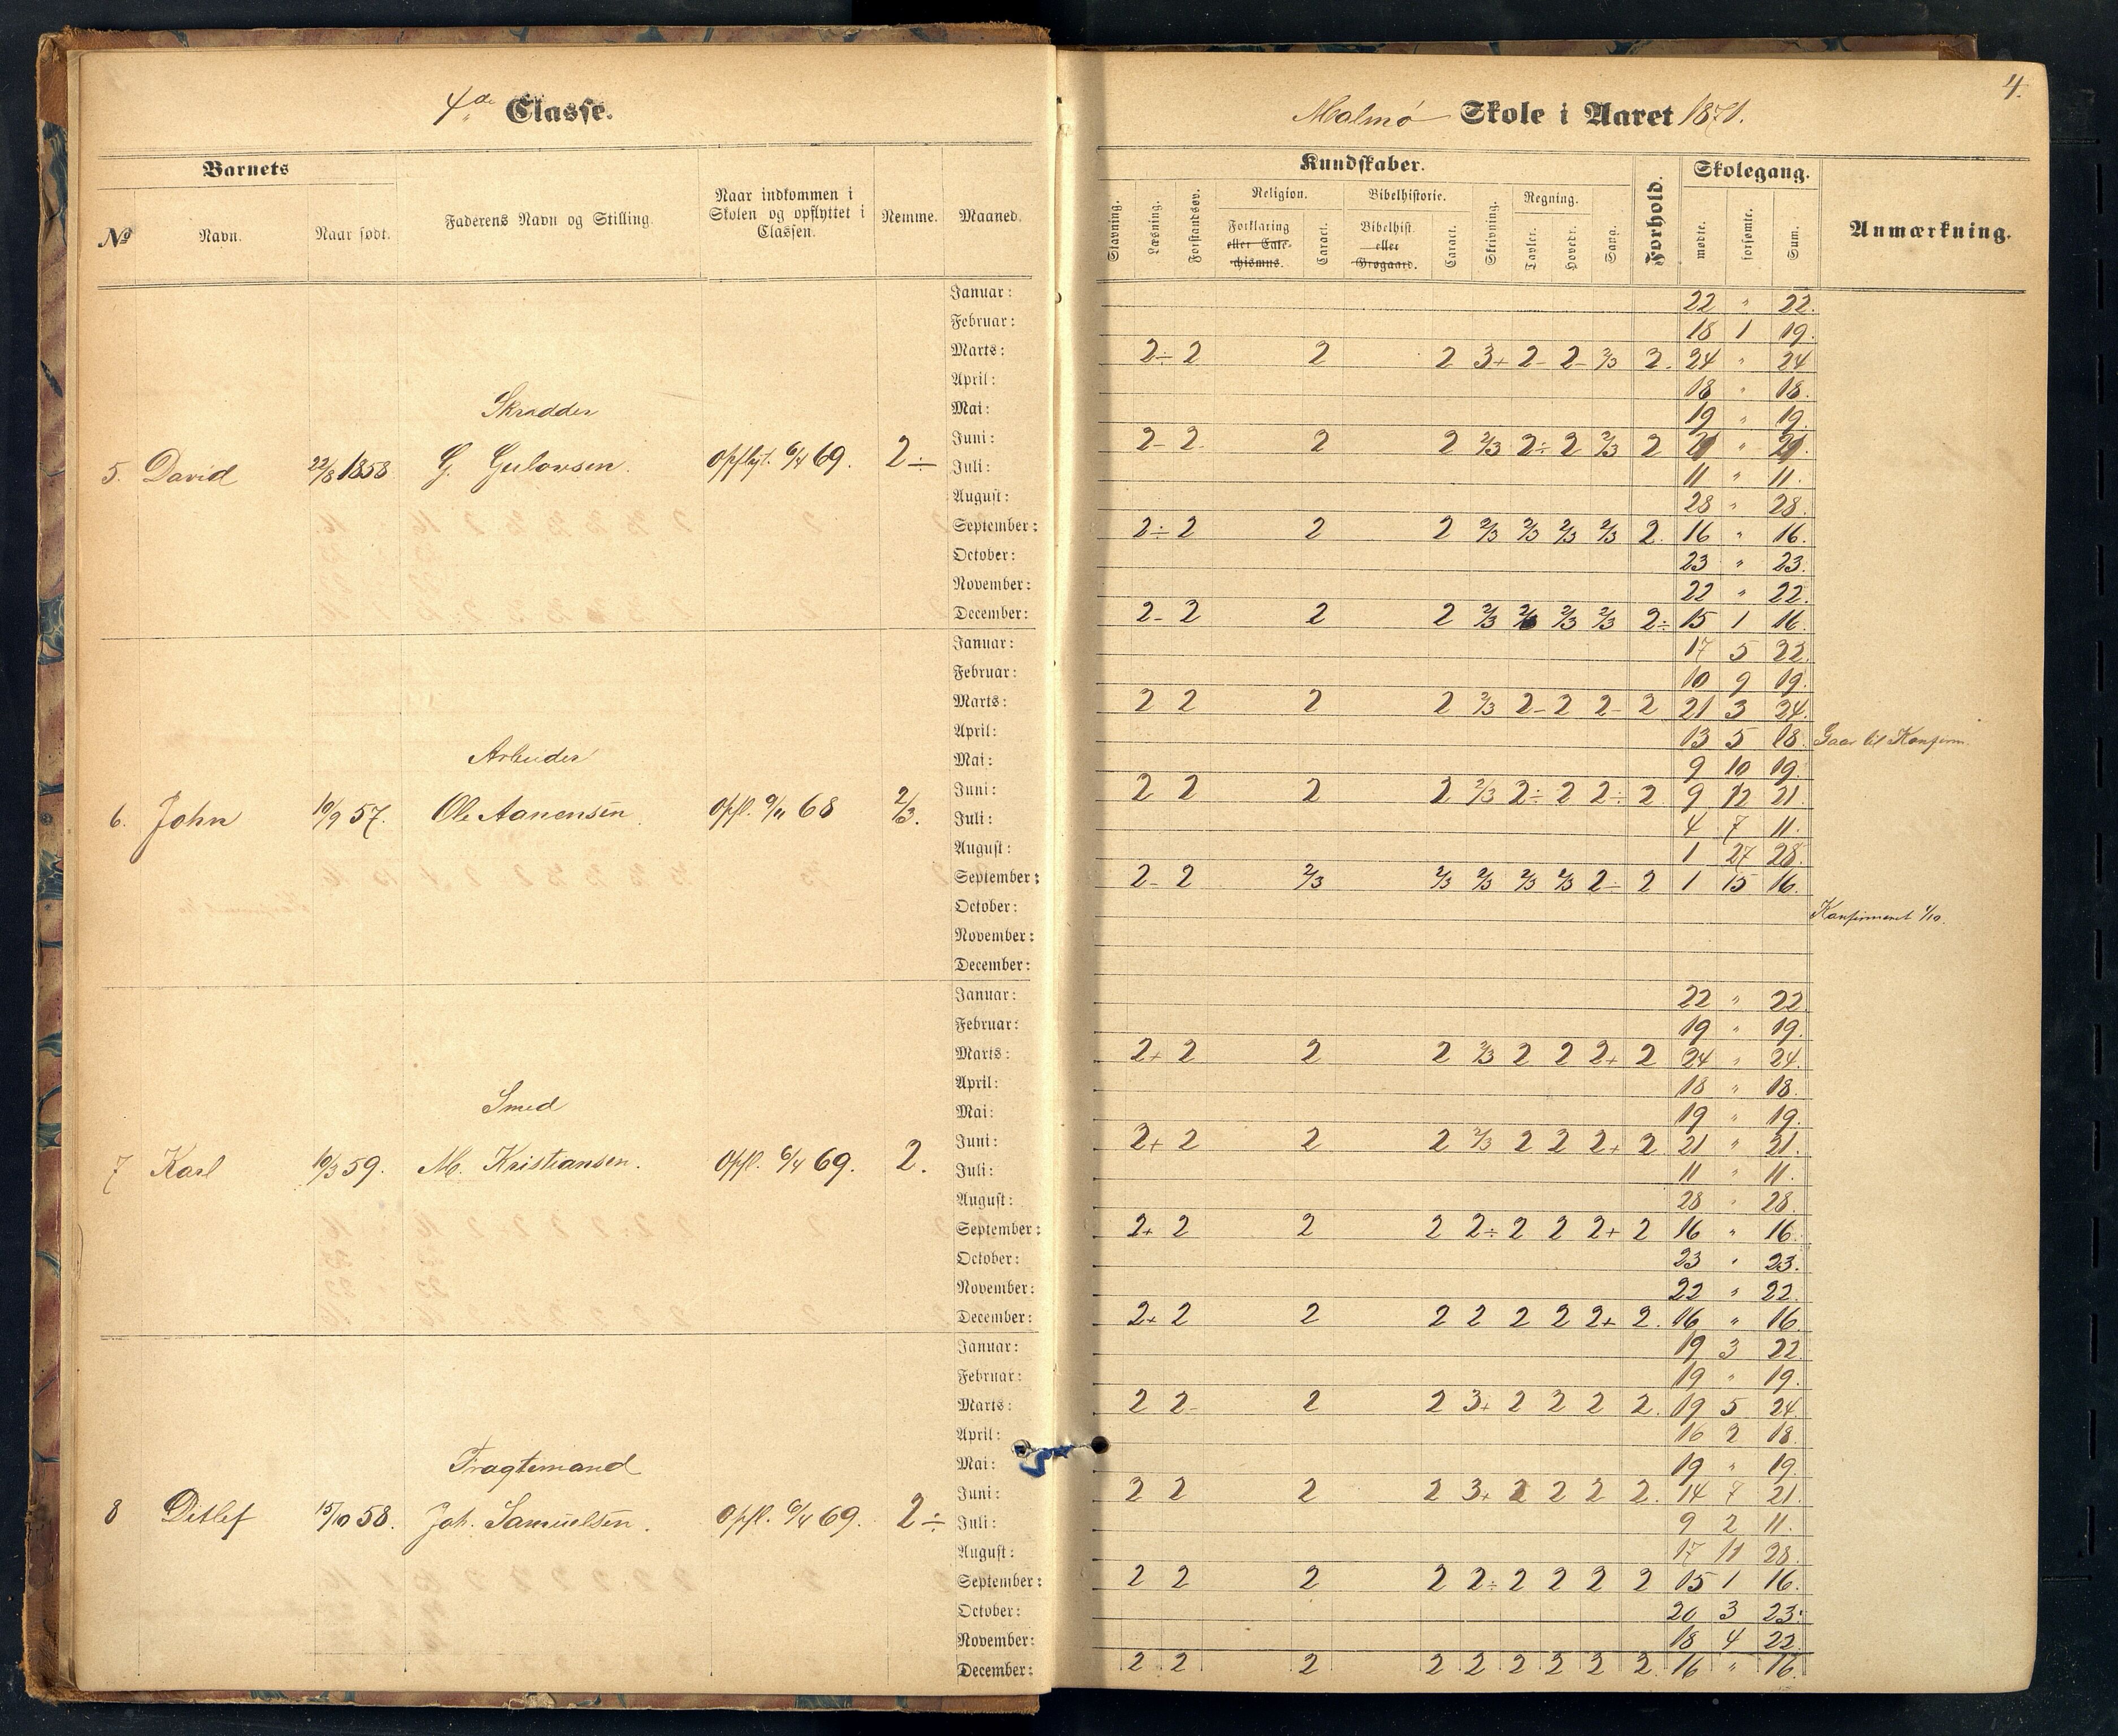 4.
4de Classe.
Malmø Skole i Aaret 1871.
Barnets
No
Navn.
Naar født.
Faderens Navn og Stilling.
Naar indkommen i
Skolen og opflyttet i
Classen.
Nemme.
Maaned.
Kundskaber.
Stavning.
Læsning.
Forstandsøv.
Religion.
Forklaring
eller Cate-
chismus.
Caract.
Bibelhistorie.
Bibelhist.
eller
Grøgaard.
Caract.
Skrivning.
Regning.
Tavler.
Hovedr.
Sang.
Forhold.
Skolegang.
mødte.
forsømte.
Sum.
Anmærkning.
Skrædder
5. David 22/8 1858 G. Gulovsen. Opflyt. 6/4 69. 2÷
Januar: 22 " 22.
Februar: 18 1 19.
Marts: 2÷ 2 2 2 3+ 2- 2- 2/3 2. 24 " 24
April: 18 " 18.
Mai: 19 " 19.
Juni: 2- 2 2 2 2/3 2÷ 2 2/3 2 21 " 21.
Juli: 11 " 11.
August: 28 " 28.
September: 2÷ 2 2 2 2/3 2/3 2/3 2/3 2. 16 " 16.
October: 23 " 23.
November: 22 " 22.
December: 2- 2 2 2 2/3 2/3 2/3 2/3 2÷ 15 1 16.
Arbeider
6. John 10/9 57. Ole Aanensen Opfl. 9/11 68 2/3.
Januar: 17 5 22.
Februar: 10 9 19.
Marts: 2 2 2 2 2/3 2- 2 2- 2 21 3 24.
April: 13 5 18. Gaar til Konfirm.
Mai: 9 10 19.
Juni: 2 2 2 2 2/3 2÷ 2 2÷ 2 9 12 21.
Juli: 4 7 11.
August: 1 27 28.
September: 2- 2 2/3 2/3 2/3 2/3 2/3 2÷ 2 1 15 16.
October: Konfirmeret 1/10.
November:
December:
Smed
7 Karl 10/3 59. M. Kristiansen. Opfl. 6/4 69. 2.
Januar: 22 " 22
Februar: 19 " 19.
Marts: 2+ 2 2 2 2/3 2 2 2+ 2 24 " 24.
April: 18 " 18.
Mai: 19 " 19.
Juni: 2+ 2 2 2 2/3 2 2 2+ 2. 21 " 21.
Juli: 11 " 11.
August: 28 " 28.
September: 2+ 2 2 2 2÷ 2 2 2+ 2 16 " 16.
October: 23 " 23.
November: 22 " 22.
December: 2+ 2 2 2 2 2 2 2+ 2. 16 " 16.
Fragtemand
8 Ditlef 15/10 58. Joh. Samuelsen. Opfl. 6/4 69. 2÷
Januar: 19 3 22.
Februar: 19 " 19.
Marts: 2 2- 2 2 3+ 2 2 2 2. 19 5 24.
April: 16 2 18.
Mai: 19 " 19.
Juni: 2 2 2 2 3+ 2 2 2 2. 14 7 21.
Juli: 9 2 11.
August: 17 11 28.
September: 2 2 2 2 2÷ 2 2 2 2 15 1 16.
October: 20 3 23.
November: 18 4 22.
December: 2 2 2 2 2 2 2 2 2. 16 " 16.